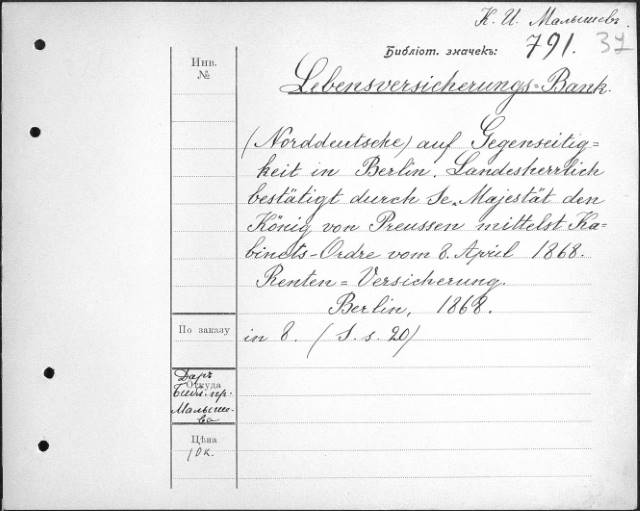 К. И. Малышевъ.
Библіот. значекъ: 791. 37
Инв.
№
Lebensversicherungs=Bank.
(Norddeutsche) auf Gegenseitig=
keit in Berlin. Landesherrlich
bestätigt durch Se. Majestät den
König von Preussen mittelst Ka=
binets-Ordre vom 8. April 1868.
Renten=Versicherung.
Berlin, 1868.
По заказу
in 8. (S. s. 20)
Даръ
Откуда
Библ. пр.
Малыше-
ва
Цѣна
10 к.